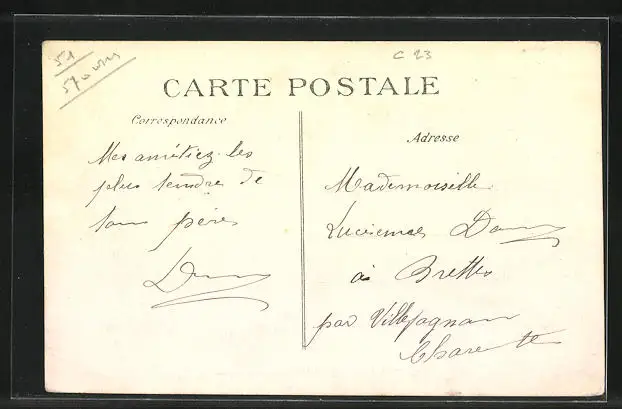 C 23
51
CARTE POSTALE
Correspondance
Mes amétiez les
plus tendre de
ton père
Adresse
Mademoiselle
Luciennes
à Brettes
par Villefagnan
Charente